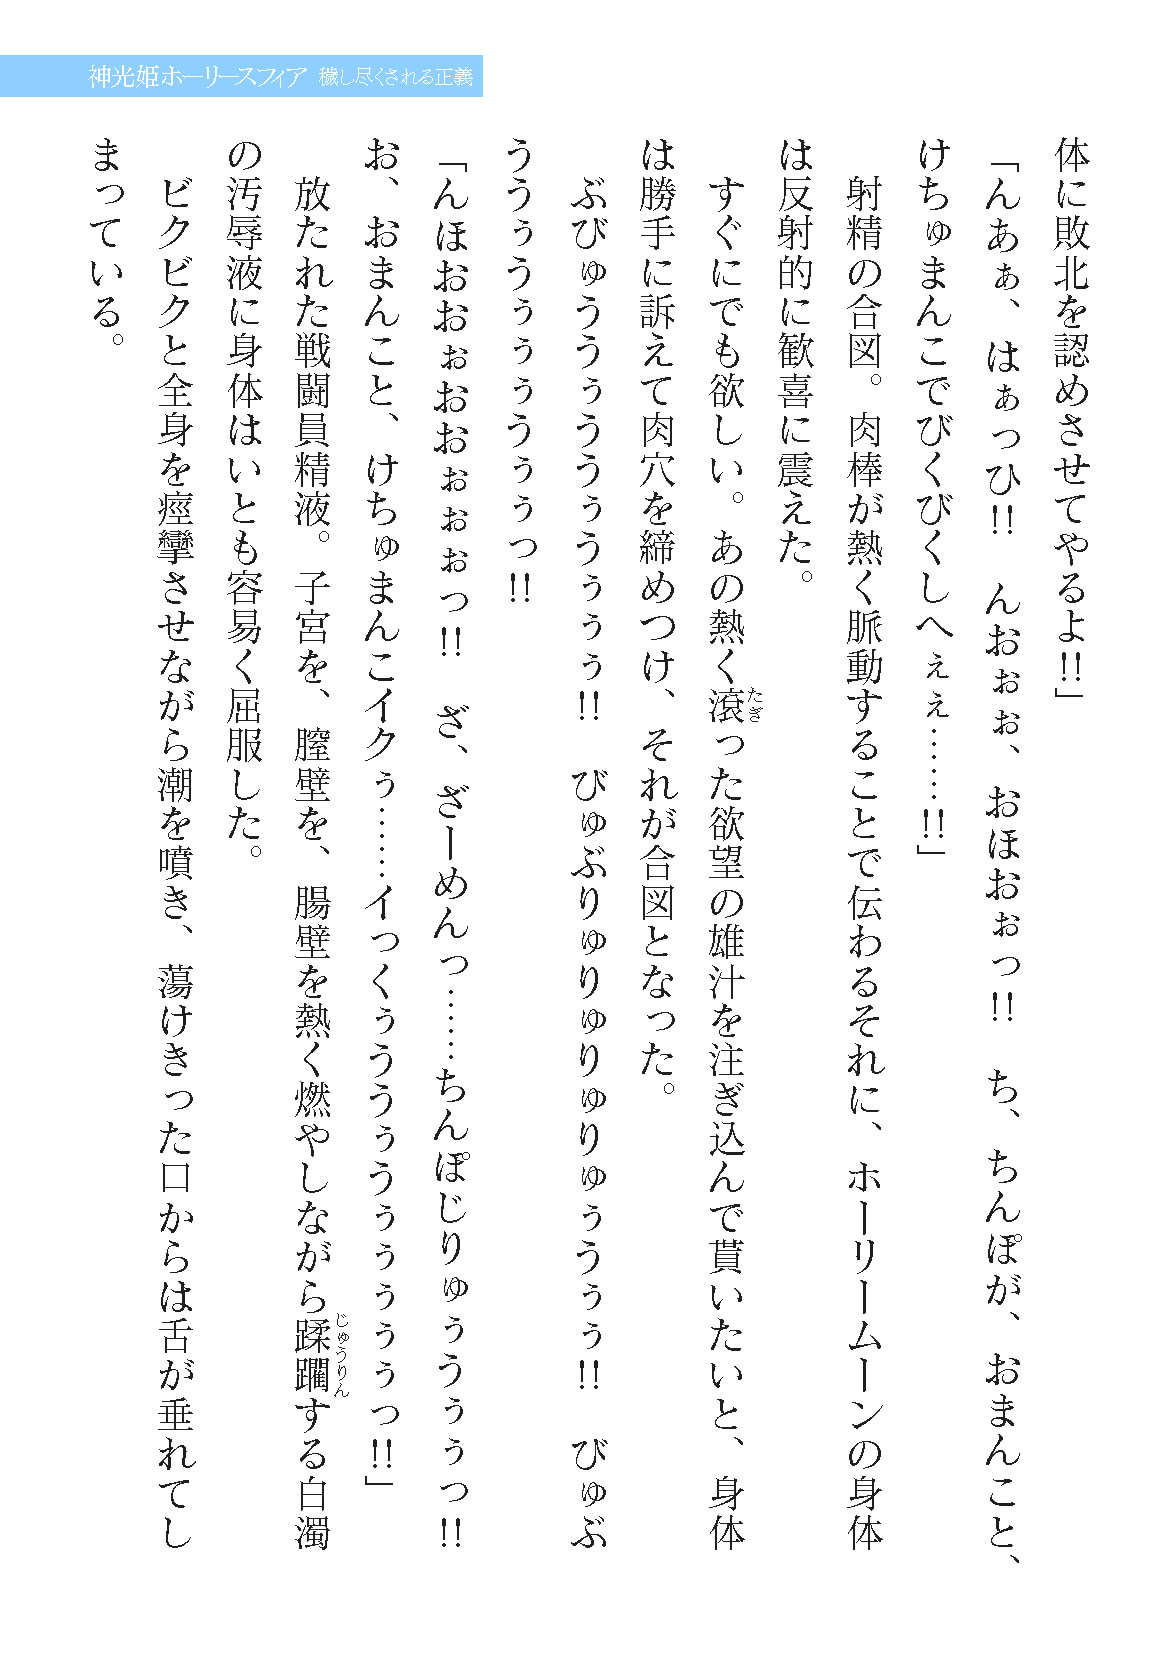 神光姫ホーリースフィア 穢し尽くされる正義
体に敗北を認めさせてやるよ!!」
「んあぁ、はぁっひ!!　んおぉぉ、おほおぉっ!!　ち、ちんぽが、おまんこと、
けちゅまんこでびくびくしへぇぇ……!!」
　射精の合図。肉棒が熱く脈動することで伝わるそれに、ホーリームーンの身体
は反射的に歓喜に震えた。
　すぐにでも欲しい。あの熱く滾った欲望の雄汁を注ぎ込んで貰いたいと、身体
たぎ
は勝手に訴えて肉穴を締めつけ、それが合図となった。
　ぶびゅううぅううぅうぅぅぅ!!　びゅぶりゅりゅりゅりゅぅうぅぅ!!　びゅぶ
ううぅうぅぅぅうぅぅっ!!
「んほおおぉおおぉぉぉっ!!　ざ、ざーめんっ……ちんぽじりゅぅうぅぅっ!!
お、おまんこと、けちゅまんこイクぅ……イっくぅううぅうぅぅぅぅぅっ!!」
　放たれた戦闘員精液。子宮を、膣壁を、腸壁を熱く燃やしながら蹂躙する白濁
じゅうりん
の汚辱液に身体はいとも容易く屈服した。
　ビクビクと全身を痙攣させながら潮を噴き、蕩けきった口からは舌が垂れてし
まっている。